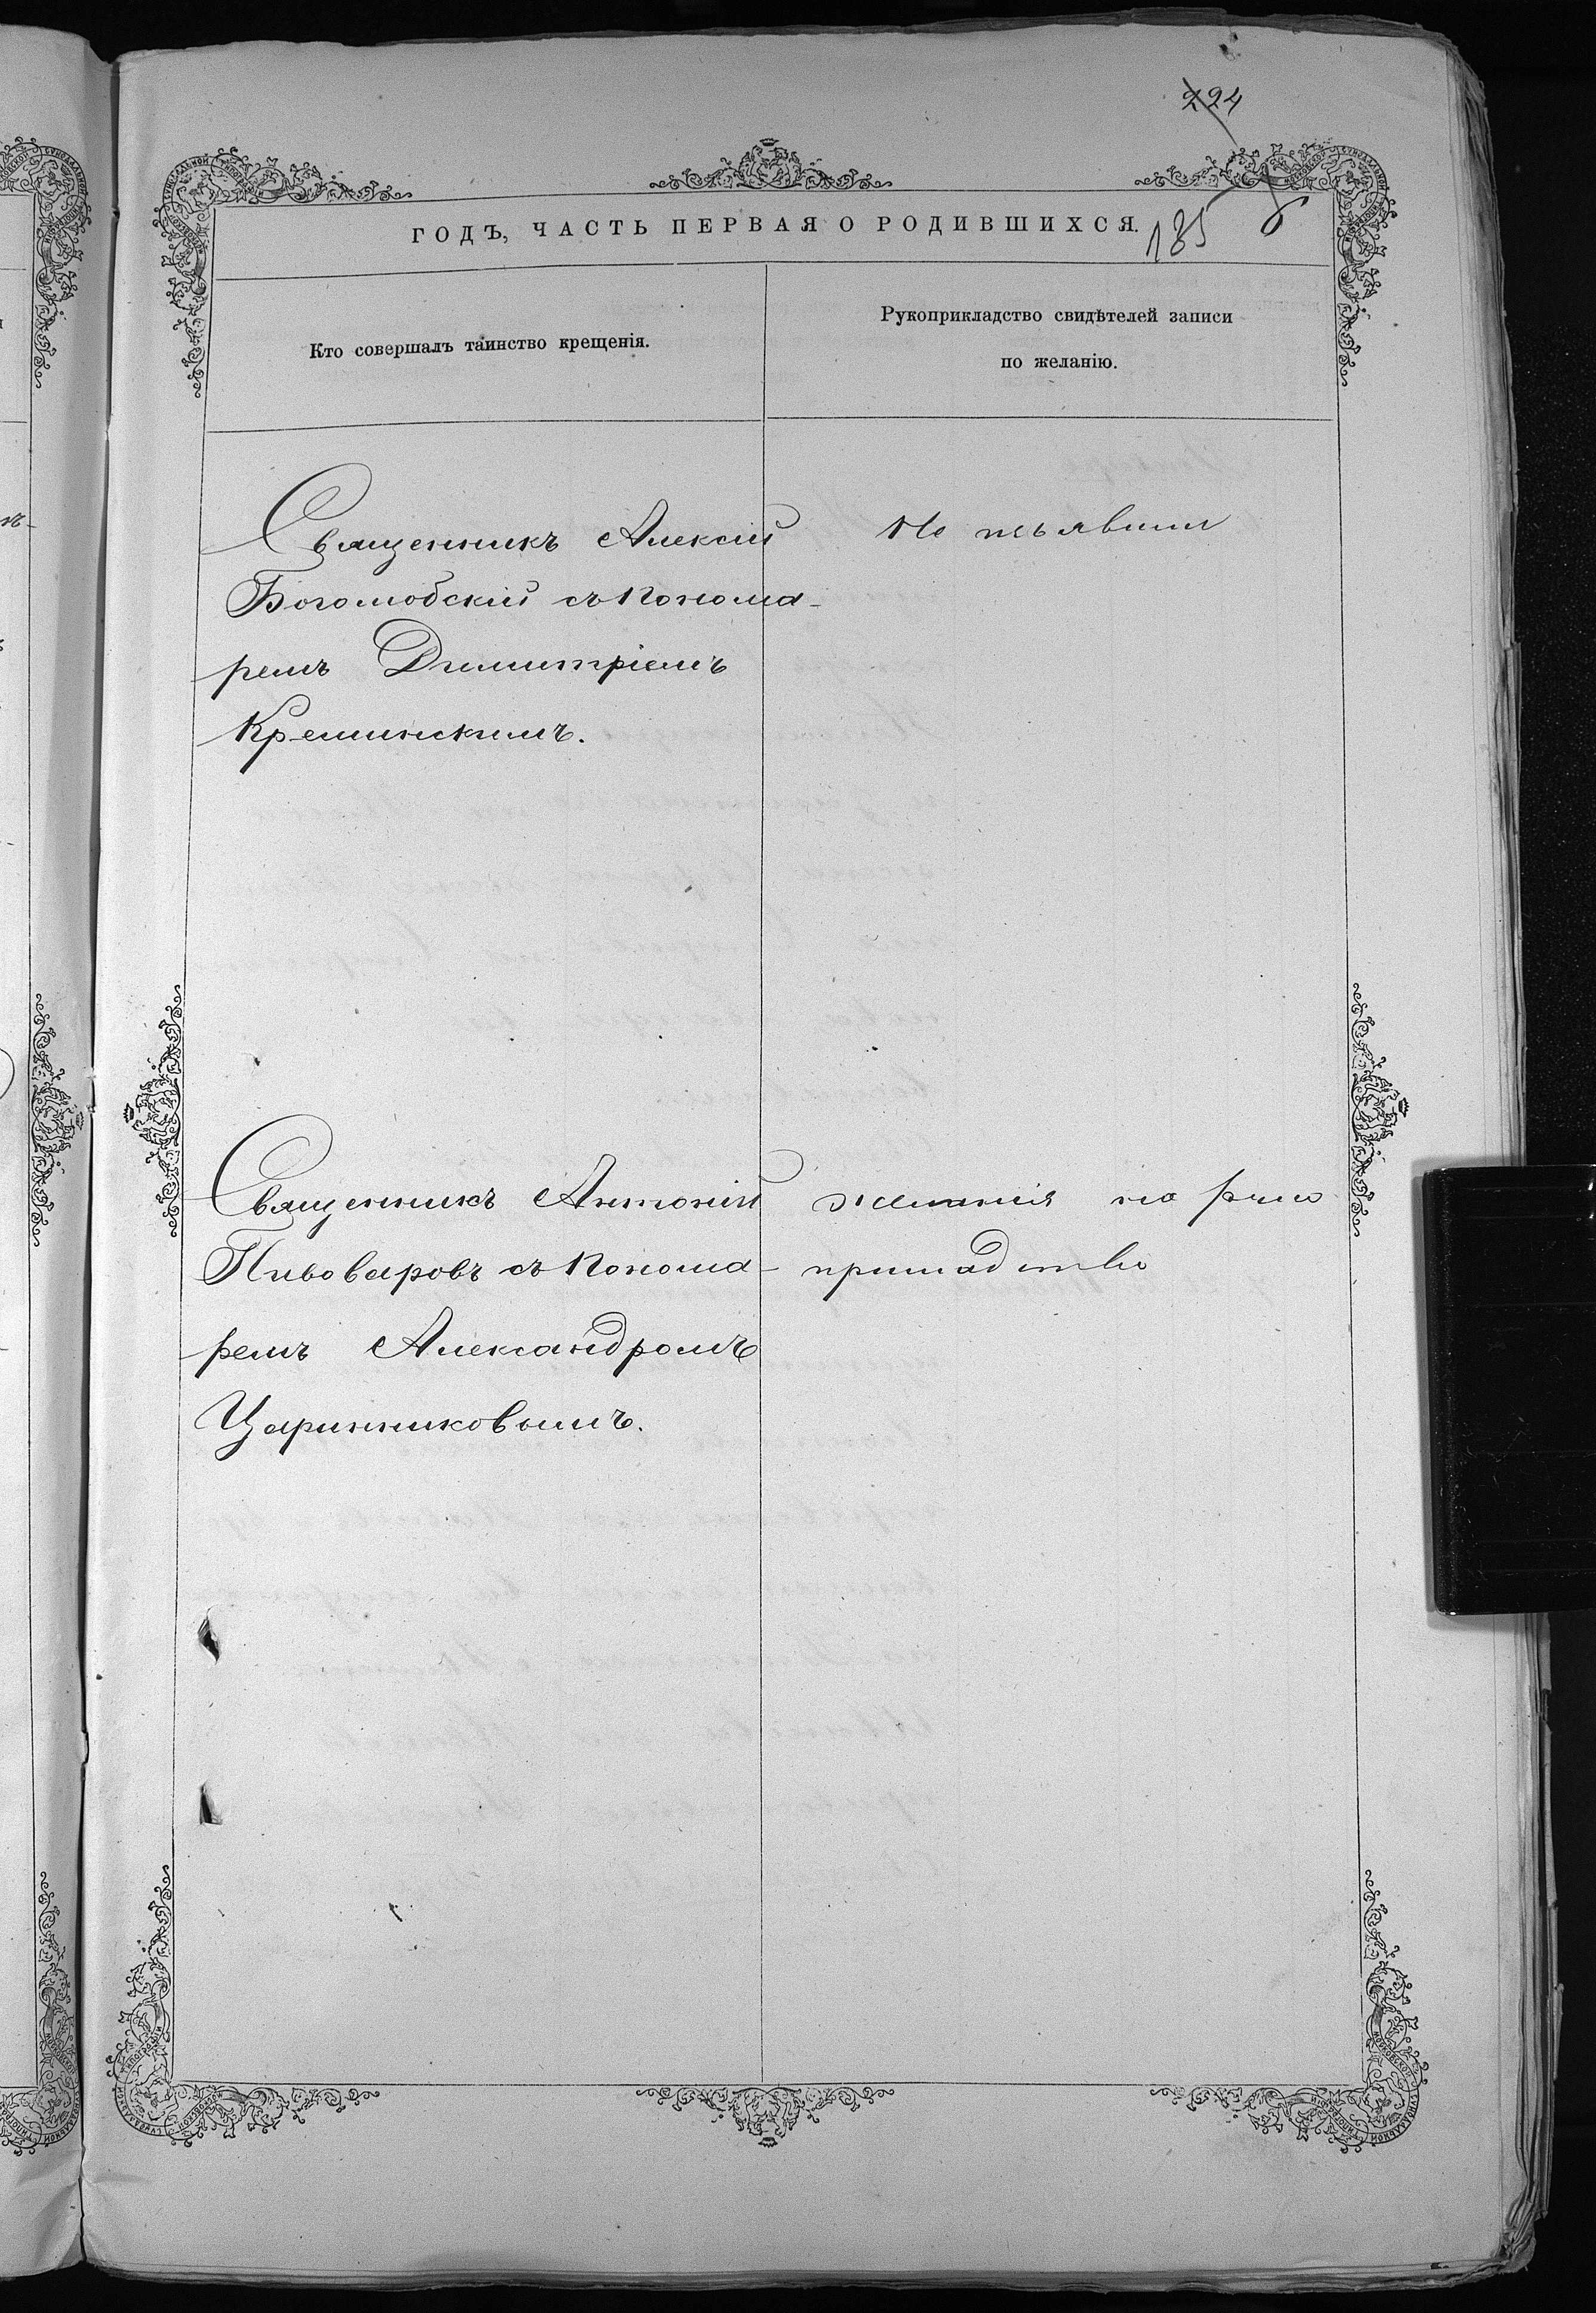 224
ГОДЪ, ЧАСТЬ ПЕРВАЯ О РОДИВШИХСЯ.
185
Кто совершалъ таинство крещенія.
Рукоприкладство свидѣтелей записи
по желанію.
Священникъ Алексій
Боголюбскій съ понома-
ремъ Димитріемъ
Креминскимъ.
Не изъявили
Священникъ Антоній
Пивоваровъ съ понома-
ремъ Александромъ
Царинниковымъ.
желанія на руко
прикладство